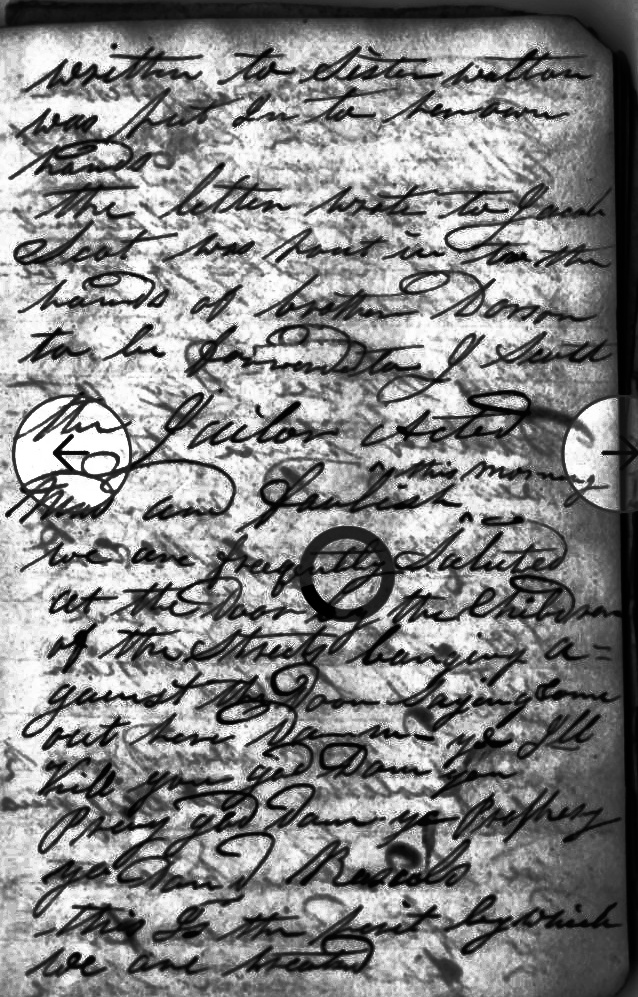 written to Sister welton
was put In to her own
hands
the letter wrote to Jacob
Scot was pout in to the
hands of brother Dorson
to be forwarded to J Scutt
the Jailor Acted
this morning
and foolish
we are frequently Saluted
at the Door by the Children
of the Streets banging a=
gainst the Door Saying Come
out here Damm ye Ill
kill you god Dam you
Pray god Dam ye Prophesy
ye Dam'd Rascals
this Is the spirit by which
we are treated